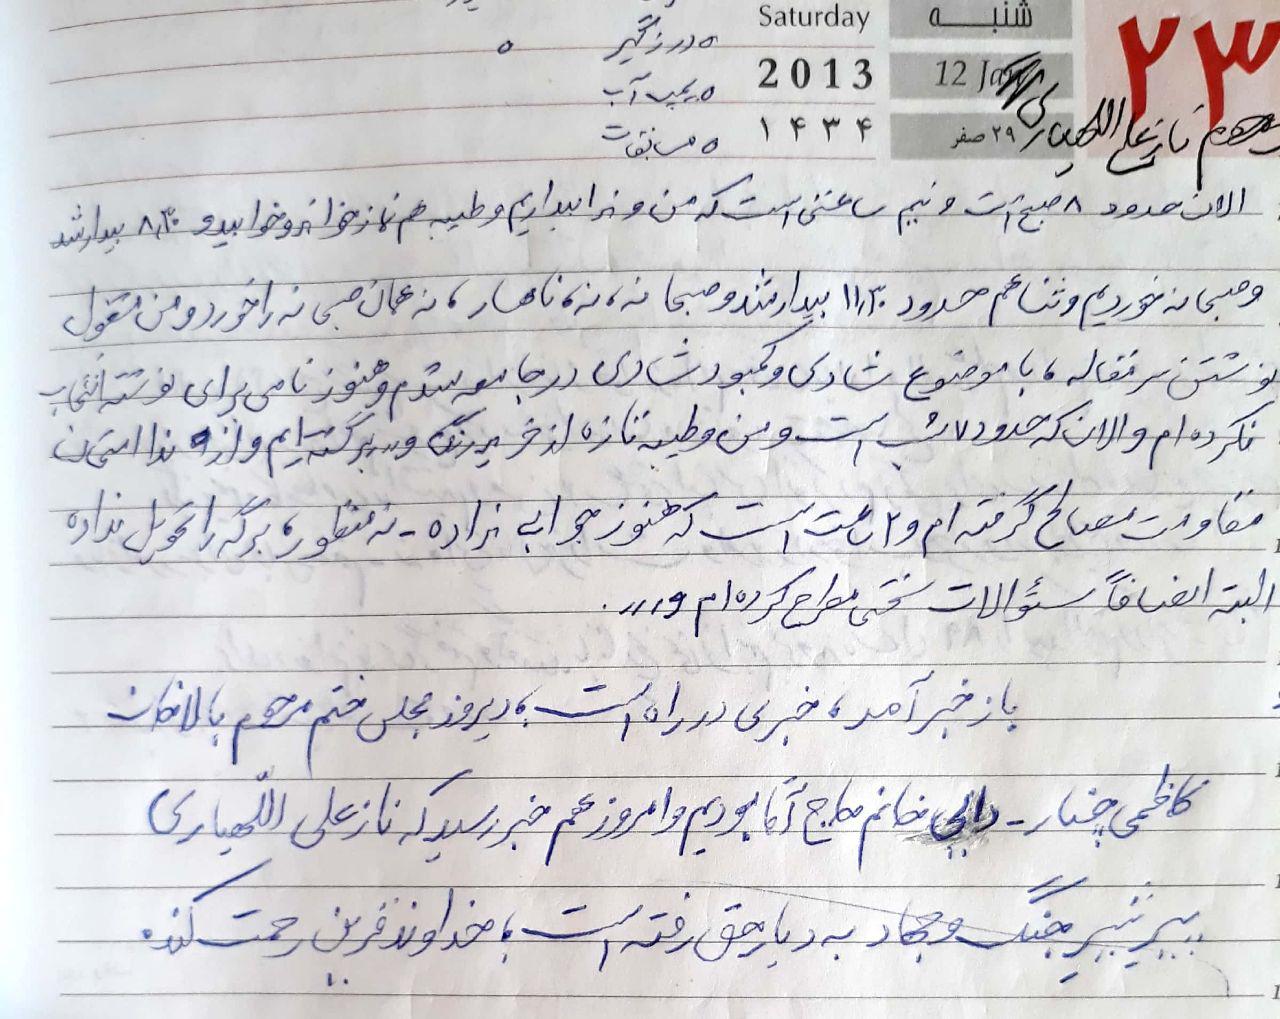 Saturday
شنبه
۲۳
درزگیر
2013
12 Jan
پمپ آب
۱۴۳۴
۲۹ صفر
مرحوم نازعلی اللهیاری
مسابقات
الان حدود ۸ صبح است و نیم ساعتی است که من و ندا بیداریم و طیبه هم نماز خواند و خوابید و ۸/۳۰ بیدار شد
و صبحانه خوردیم و ثنا هم حدود ۱۱/۳۰ بیدار شد و صبحانه، نه، ناهار، نه همان صبحانه را خورد و من مشغول
نوشتن سرمقاله، با موضوع شادی و کمبود شادی در جامعه شدم و هنوز نامی برای نوشته انتخاب
نکرده ام و الان که حدود ۷ شب است و من و طیبه تازه از خرید رنگ و ... برگشته ایم و از ندا امتحان
مقاومت مصالح گرفته ام و ۲ ساعت است که هنوز جوابی نداده - نه منظور، برگه را تحویل نداده
البته انصافاً سئوالات سختی مطرح کرده ام و ... .
باز خبر آمد، خبری در راه است، دیروز مجلس ختم مرحوم بالاخان
کاظمی چنار - دایی خانم حاج آقا بودیم و امروز هم خبر رسید که نازعلی اللّهیاری
پیر شیر جنگ و جهاد به دیار حق رفته است، خداوند قرین رحمت کند.